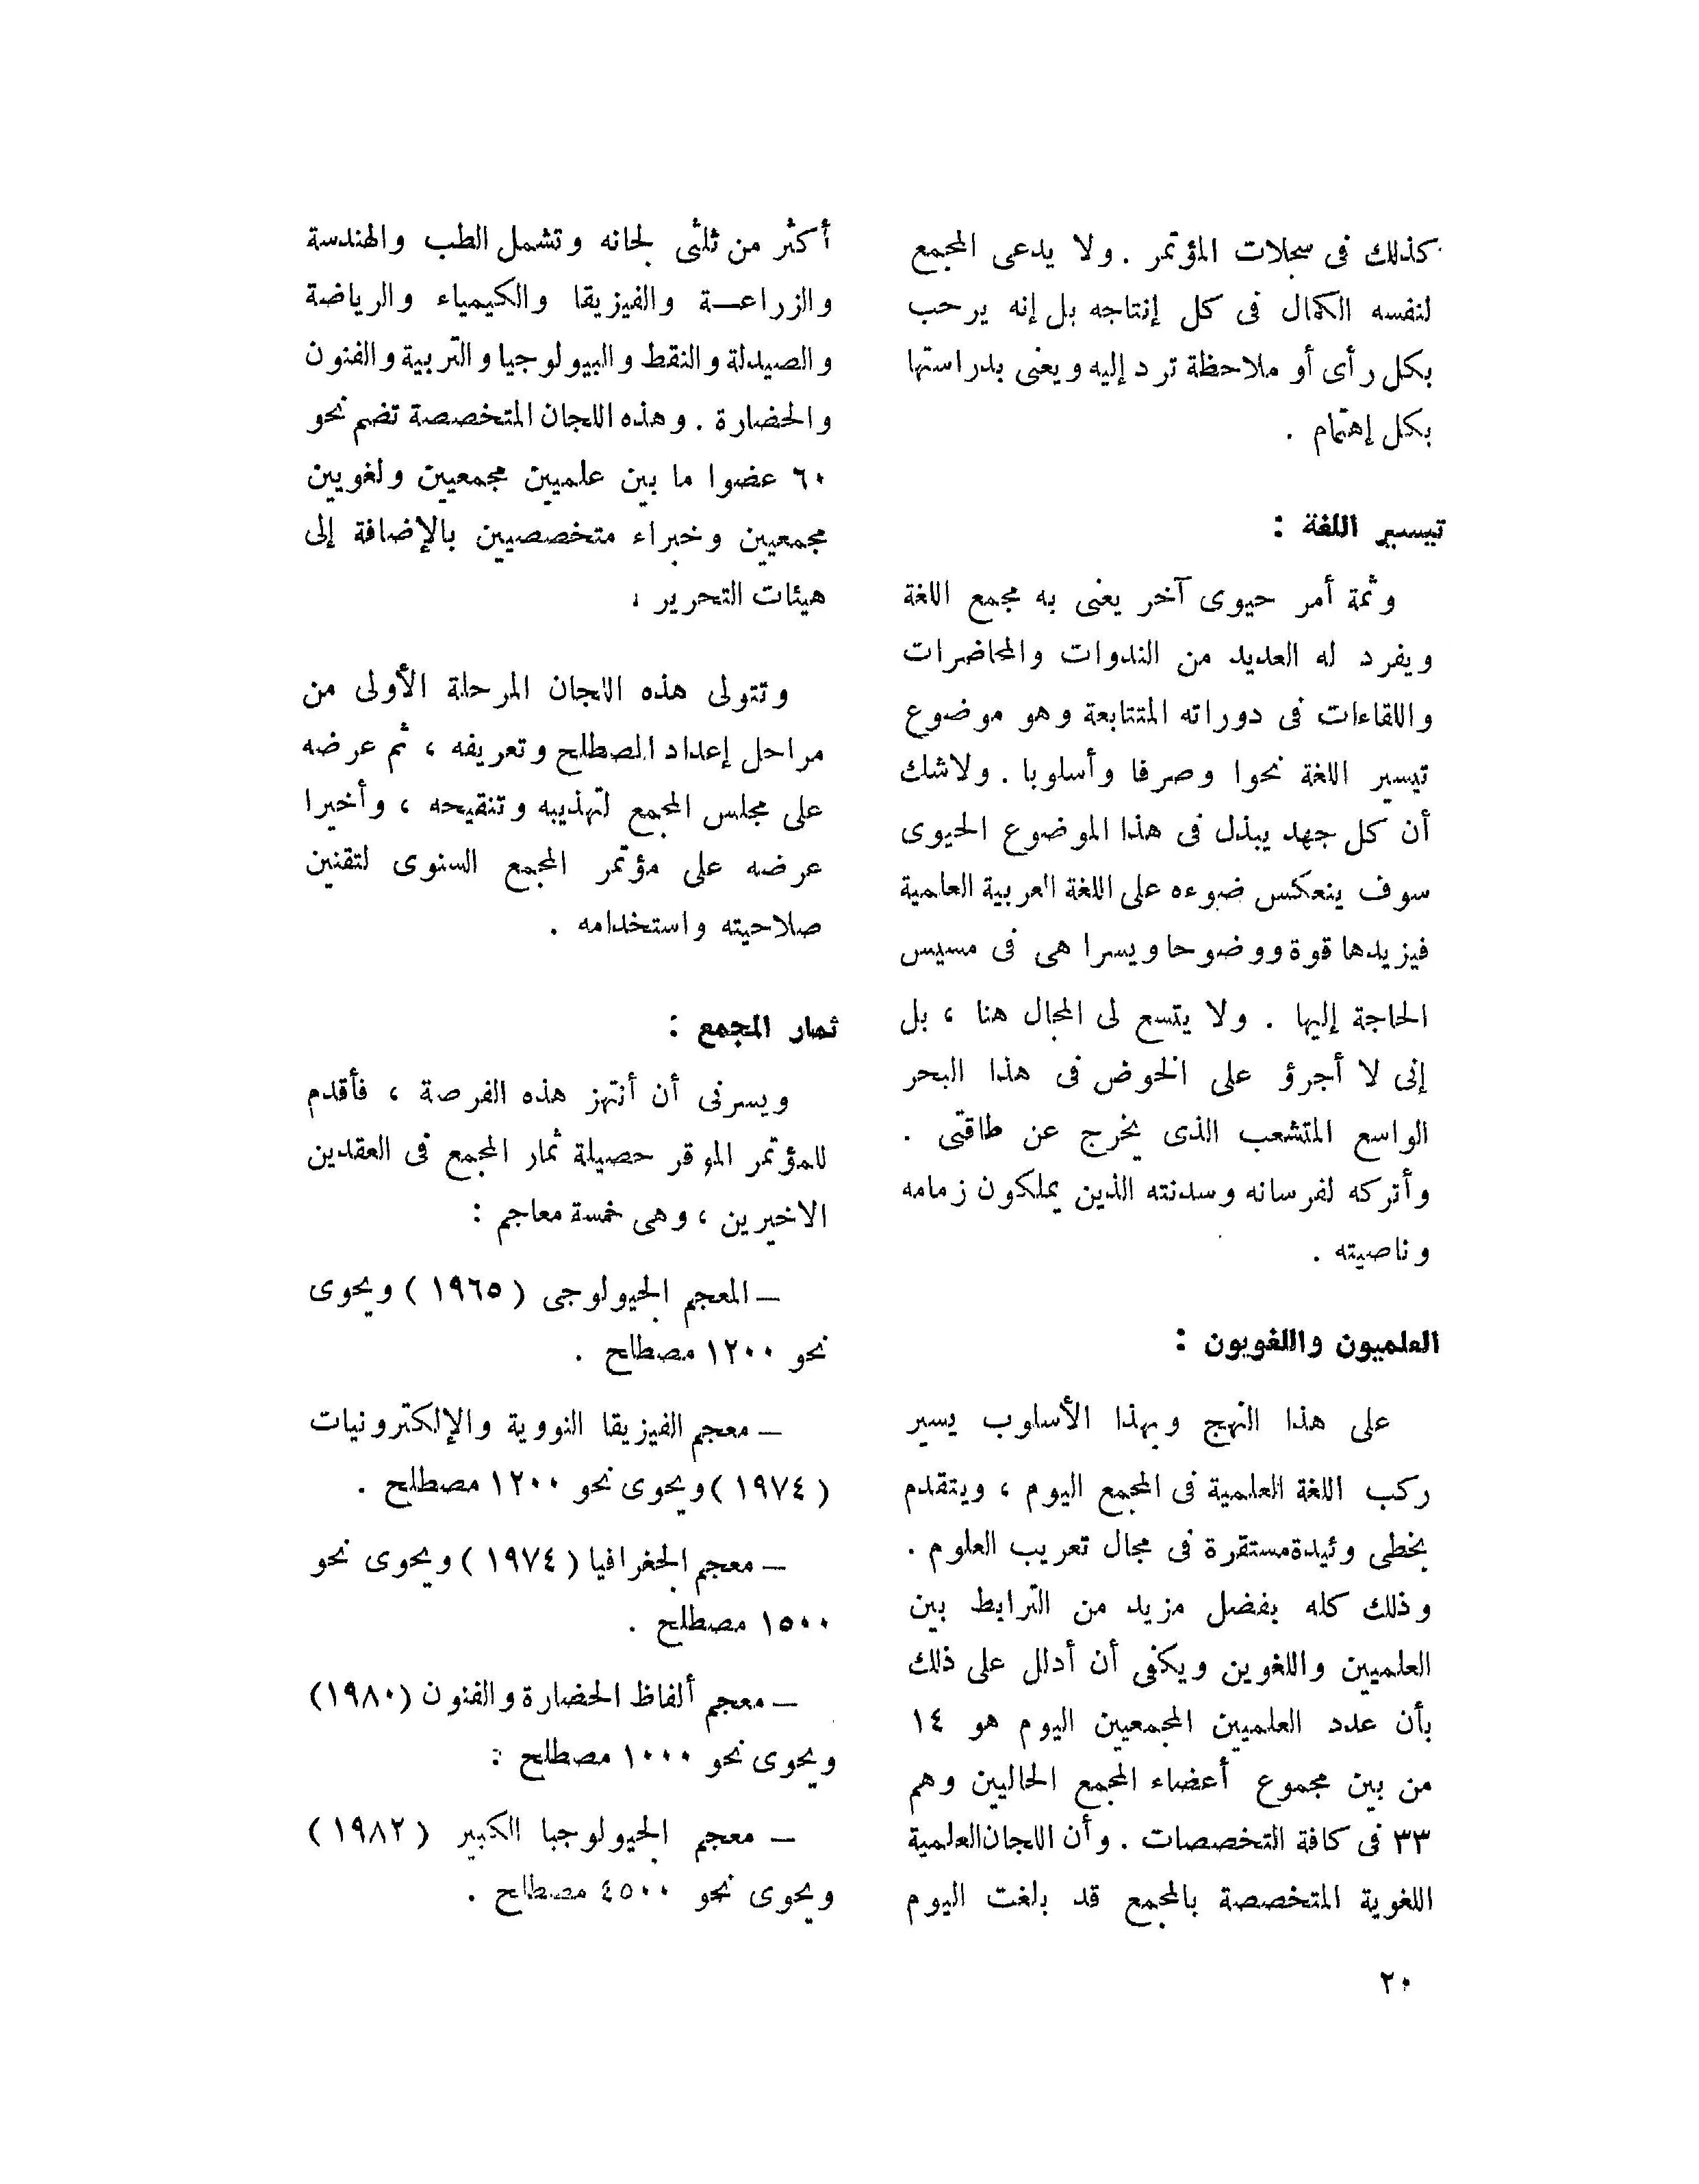 كذلك فى سجلات المؤتمر . ولا يدعى المجمع
لنفسه الكمال فى كل إنتاجه بل إنه يرحب
بكل رأى أو ملاحظة ترد إليه ويعنى بدراستها
بكل إهتمام .
تيسير اللغة :
وثمة أمر حيوى آخر يعنى به مجمع اللغة
ويفرد له العديد من الندوات والمحاضرات
واللقاءات فى دوراته المتتابعة وهو موضوع
تيسير اللغة نحوا وصرفا وأسلوبا . ولاشك
أن كل جهد يبذل فى هذا الموضوع الحيوى
سوف ينعكس ضوءه على اللغة العربية العلمية
فيزيدها قوة ووضوحا ويسرا هى فى مسيس
الحاجة إليها . ولا يتسع لى المجال هنا ، بل
إنى لا أجرؤ على الخوض فى هذا البحر
الواسع المتشعب الذى يخرج عن طاقتى .
وأتركه لفرسانه وسدنته الذين يملكون زمامه
وناصيته .
العلميون واللغويون :
على هذا النهج وبهذا الأسلوب يسير
ركب اللغة العلمية فى المجمع اليوم ، ويتقدم
بخطى وئيدة مستقرة فى مجال تعريب العلوم .
وذلك كله بفضل مزيد من الترابط بين
العلميين واللغوين ويكفى أن أدلل على ذلك
بأن عدد العلميين المجمعيين اليوم هو ١٤
من بين مجموع أعضاء المجمع الحاليين وهم
٣٣ فى كافة التخصصات . وأن اللجان العلمية
اللغوية المتخصصة بالمجمع قد بلغت اليوم
أكثر من ثلثى لجانه وتشمل الطب والهندسة
والزراعــة والفيزيقا والكيمياء والرياضة
والصيدلة والنقط والبيولوجيا والتربية والفنون
والحضارة . وهذه اللجان المتخصصة تضم نحو
٦٠ عضوا ما بين علميين مجمعيين ولغويين
مجمعيين وخبراء متخصصيين بالإضافة إلى
هيئات التحرير .
وتتولى هذه اللجان المرحلة الأولى من
مراحل إعداد المصطلح وتعريفه ، ثم عرضه
على مجلس المجمع لتهذيبه وتنقيحه ، وأخيرا
عرضه على مؤتمر المجمع السنوى لتقنين
صلاحيته واستخدامه .
ثمار المجمع :
ويسرنى أن أنتهز هذه الفرصة ، فأقدم
للمؤتمر الموقر حصيلة ثمار المجمع فى العقدين
الاخيرين ، وهى خمسة معاجم :
– المعجم الجيولوجى ( ١٩٦٥ ) ويحوى
نحو ١٢٠٠ مصطلح .
– معجم الفيزيقا النووية والإلكترونيات
( ١٩٧٤ ) ويحوى نحو ١٢٠٠ مصطلح .
– معجم الجغرافيا ( ١٩٧٤ ) ويحوى نحو
١٥٠٠ مصطلح .
– معجم ألفاظ الحضارة والفنون (١٩٨٠)
ويحوى نحو ١٠٠٠ مصطلح :
– معجم الجيولوجيا الكبير ( ١٩٨٢ )
ويحوى نحو ٤٥٠٠ مصطلح .
٢٠